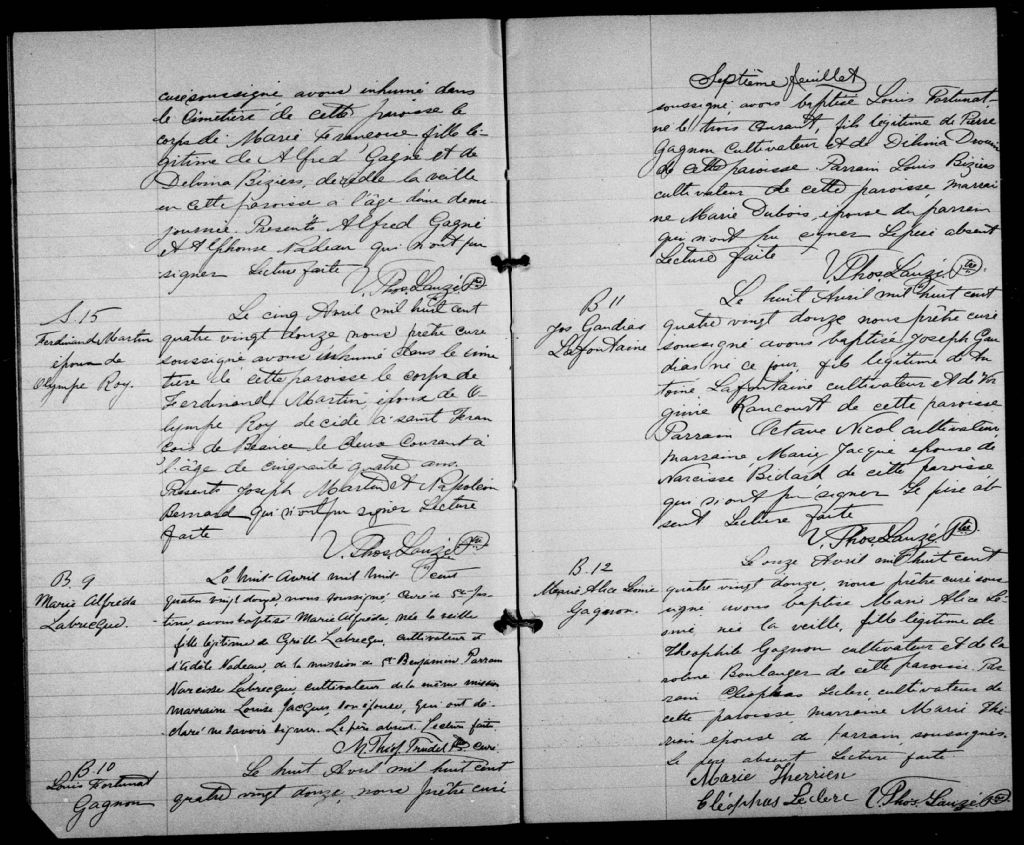 curé soussigné avons inhumé dans
le cimetière de cette paroisse le
corps de Marie francoise fille lé-
gitime de Alfred Gagné et de
Delvina Biziers, décédée la veille
en cette paroisse a l'âge d'une demie
journée. Présents Alfred Gagné
et Alphonse Nadeau qui n'ont pu
signer Lecture faite
V. Phos. Lauzé Ptre
S. 15
Ferdinand Martin
époux de
Olympe Roy.
Le cinq Avril mil huit cent
quatre vingt douze nous prêtre curé
soussigné avons inhumé dans le cime
tière de cette paroisse le corps de
Ferdinand Martin époux de O-
lympe Roy décidé a saint Fran
cois de Beauce le deux Courant à
l'âge de cinquante quatre ans.
Présents Joseph Martin et Napoléon
Bernard qui n'ont pu signer Lecture
faite
V. Phos. Lauzé Ptre
B. 9
Marie Alfréda
Labrecque.
Le huit Avril mil huit Cent
quatre vingt douze, nous soussigné Curé de Ste Jus-
tine avons baptisé Marie Alfréda, née la veille
fille légitime de Cyrille Labrecque, cultivateur et
d'Adèle Nadeau, de la mission de St Benjamin. Parrain
Narcisse Labrecque cultivateur de la même mission
marraine Louise Jacques, son épouse, qui ont dé-
claré ne savoir signer. Le père absent. Lecture faite.
M. Théof. Trudel Ptre Curé
B. 10
Louis Fortunat
Gagnon
Le huit Avril mil huit cent
quatre vingt douze, nous prêtre curé
Septième feuillet
soussigné avons baptisé Louis Fortunat,
né le trois courant, fils légitime de Pierre
Gagnon Cultivateur et de Délvina Drouin
de cette paroisse Parrain Louis Biziers
cultivateur de cette paroisse, marrai
ne Marie Dubois, épouse du parrain
qui n'ont pu signer Le père absent
Lecture faite
V. Phos. Lauzé Ptre.
B 11
Jos Gaudias
Lafontaine
Le huit Avril mil huit cent
quatre vingt douze nous prêtre curé
soussigné avons baptisé Joseph Gau
dias né ce jour, fils légitime de An
toine Lafontaine cultivateur et de Vir
ginie Rancourt de cette paroisse
Parrain Octave Nicol cultivateur
marraine Marie Jacque épouse de
Narcisse Bidard de cette paroisse
qui n'ont pu signer Le père ab
sent Lecture faite
V. Phos. Lauzé Ptre.
B. 12
Marie Alice Lomie
Gagnon.
Le onze Avril mil huit cent
quatre vingt douze, nous prêtre curé sous
signé avons baptisé Marie Alice Lo-
mie, née la veille, fille légitime de
Théophile Gagnon cultivateur et de Ca
roline Boulanger de cette paroisse. Par
rain Cléophas Leclerc cultivateur de
cette paroisse, marraine Marie Thé
rien épouse de parrain, soussignés.
Le père absent Lecture faite
Marie Therrien
Cléophas Leclerc V. Phos. Lauzé Ptre